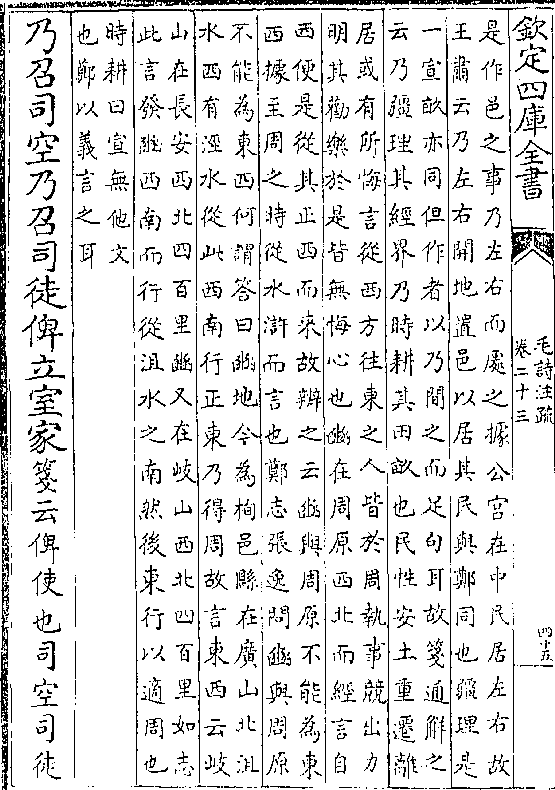 欽定四庫全書
毛詩注疏
卷二十三
四十五
是作邑之事乃左右而處之據公宮在中民居左右故
王肅云乃左右開地置邑以居其民與鄭同也疆理是
一宣畝亦同但作者以乃間之而足句耳故箋通解之
云乃疆理其經界乃時耕其田畝也民性安土重遷離
居或有所悔言從西方往東之人皆於周執事競出力
明其勸樂於是皆無悔心也豳在周原西北而經言自
西便是從其正西而來故辨之云豳與周原不能為東
西據至周之時從水滸而言也鄭志張逸問豳與周原
不能為東西何謂荅曰豳地今為栒邑縣在廣山北沮
水西有涇水從此西南行正東乃得周故言東西云岐
山在長安西北四百里豳又在岐山西北四百里如志
此言發豳西南而行從沮水之南然後東行以適周也
時耕曰宣無他文
也鄭以義言之耳
乃召司空乃召司徒俾立室家箋云俾使也司空司徒